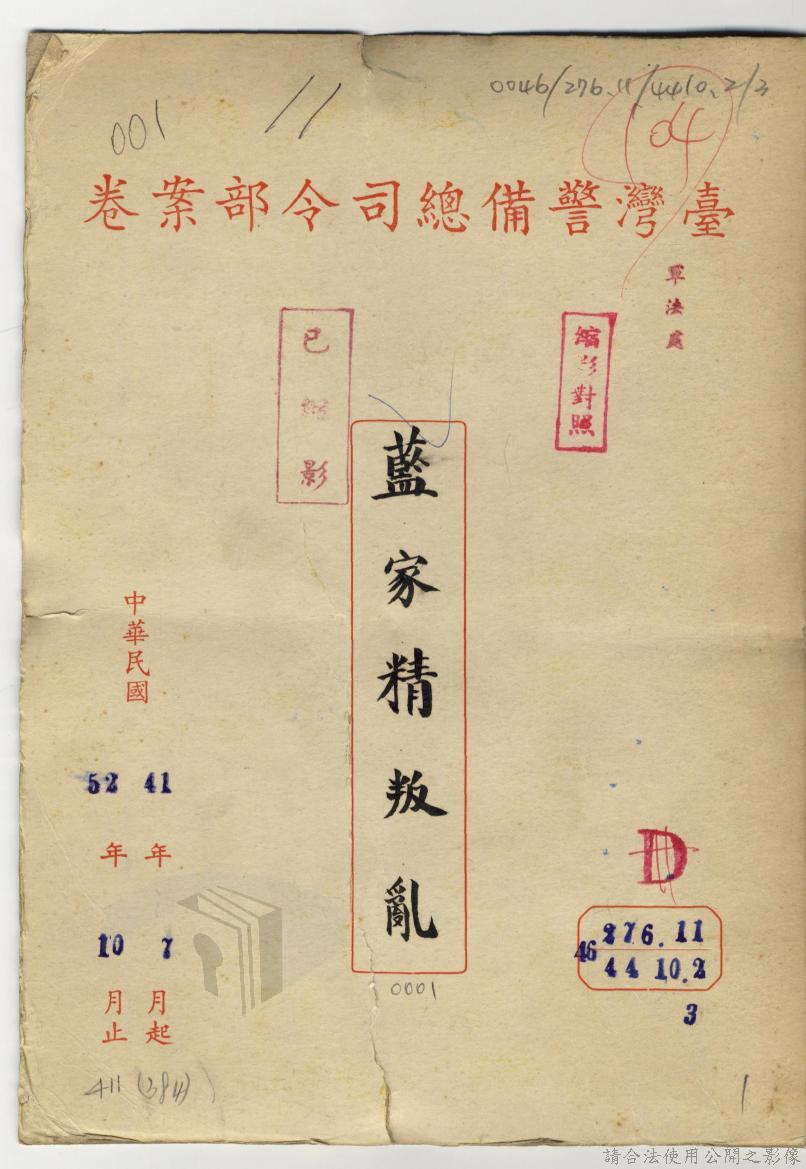 0046/276.11/4410.2/3
001
11
04
臺灣警備總司令部案卷
軍法處
縮影對照
已縮影
藍家精叛亂
0001
中華民國
41年7月起
52年10月止
D
46
276.11
4410.2
3
411(384)
1
請合法使用公開之影像